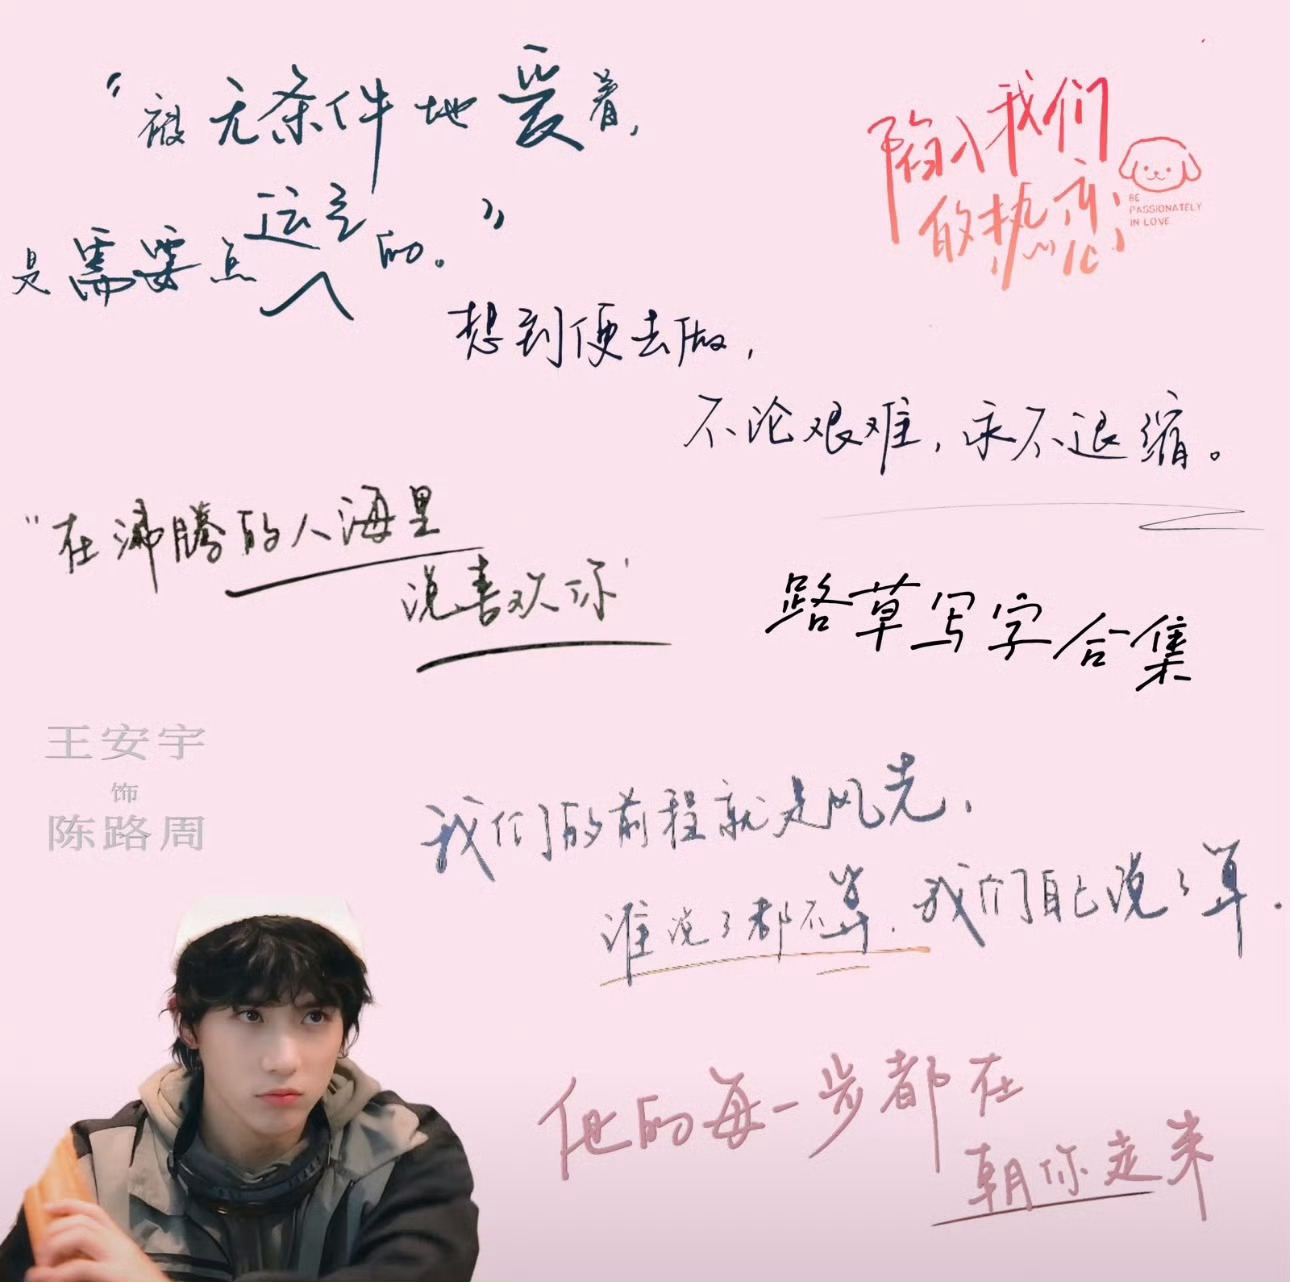 “被无条件地爱着，
是需要点运气的。”
陷入我们
的热恋
BE
PASSIONATELY
IN LOVE
想到便去做，
不论艰难，永不退缩。
“在沸腾的人海里
说喜欢你”
路草写字合集
王安宇
饰
陈路周
我们的前程就是风光，
谁说了都不算，我们自己说了算.
他的每一步都在
朝你走来